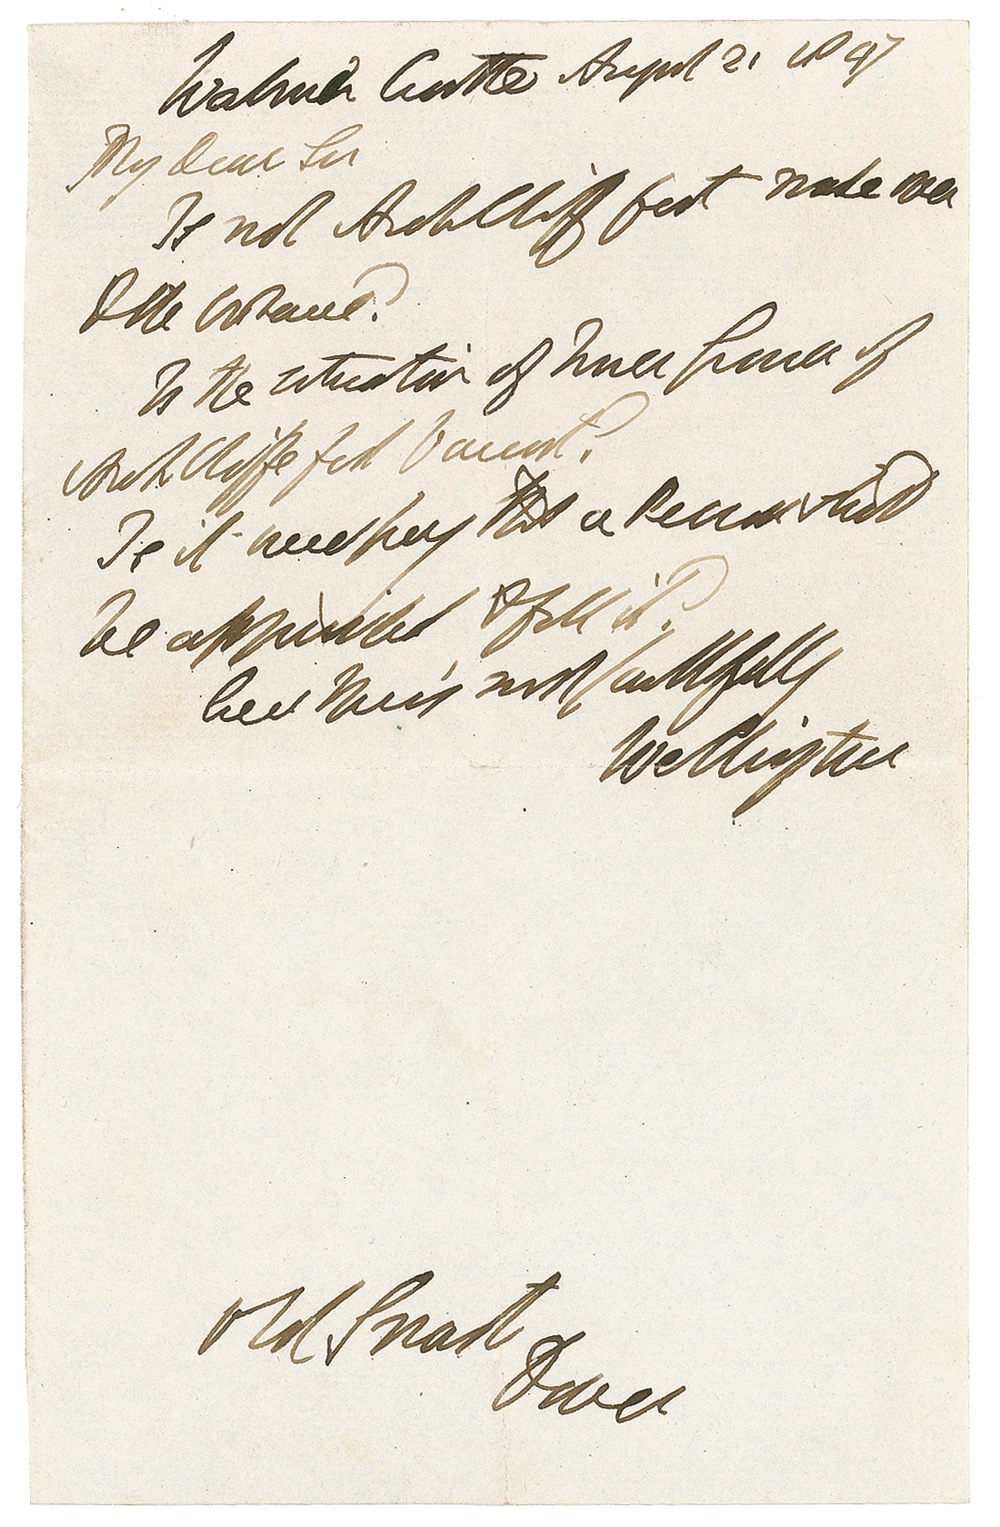 Walmer Castle August 21 1847
My Dear Sir
Is not Archcliff fort made over
to the Ordnance?
Is the situation of Lower Gunner of
Archcliffe fort Vacant?
Is it necessary that a Person should
be appointed to fill it?
most faithfully
Wellington
Dover